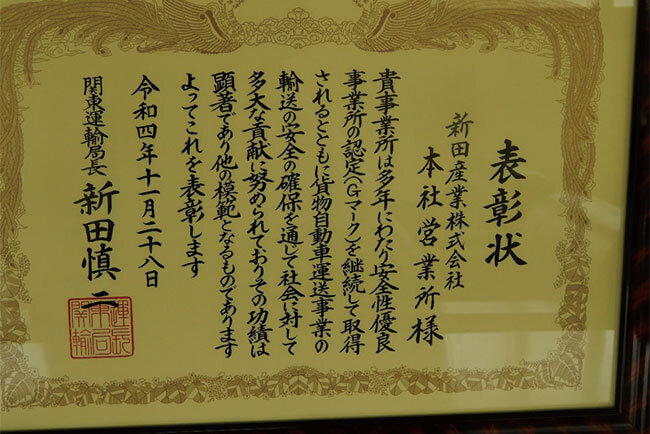 表彰状
新田産業株式会社
本社営業所様
貴事業所は多年にわたり安全性優良
事業所の認定(Gマーク)を継続して取得
されるとともに貨物自動車運送事業の
輸送の安全の確保を通して社会に対して
多大な貢献に努められておりその功績は
顕著であり他の模範となるものであります
よってこれを表彰します
令和四年十一月二十八日
関東運輸局長 新田慎二